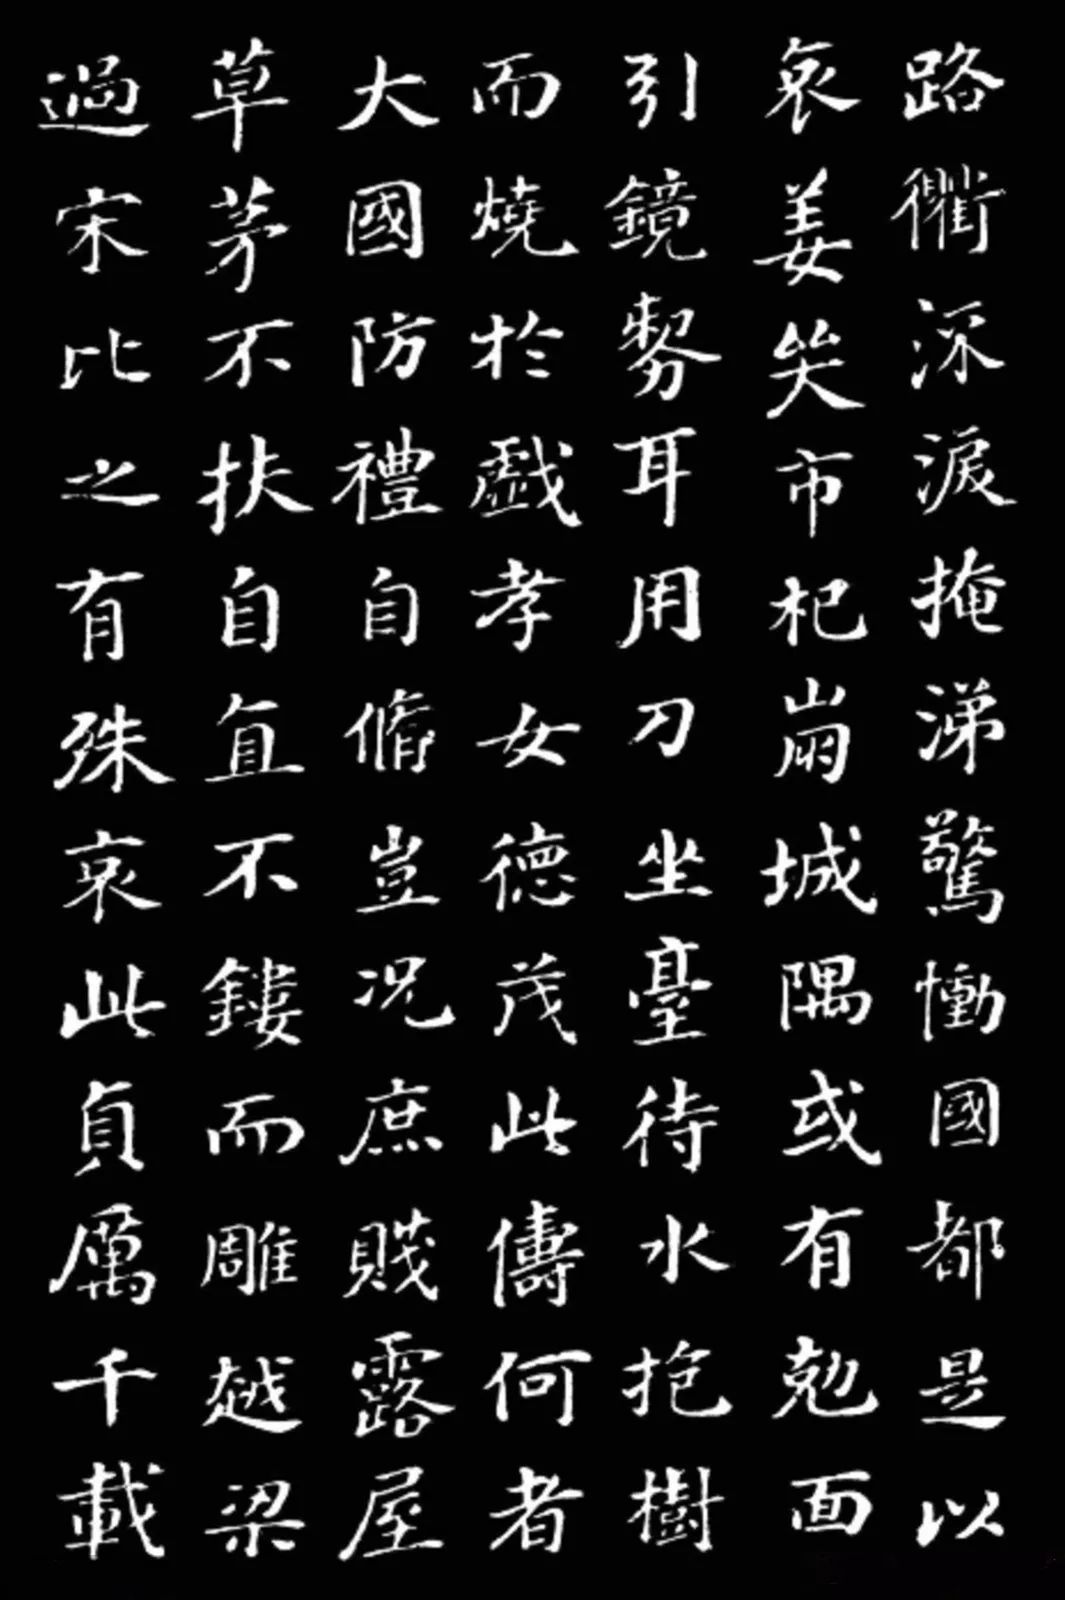 路衢深淚掩涕驚慟國都是以
哀姜哭市杞崩城隅或有勀面
引鏡剺耳用刀坐臺待水抱樹
而燒於戲孝女德茂此儔何者
大國防禮自脩豈況庶賤露屋
草茅不扶自直不鏤而雕越梁
過宋比之有殊哀此貞厲千載